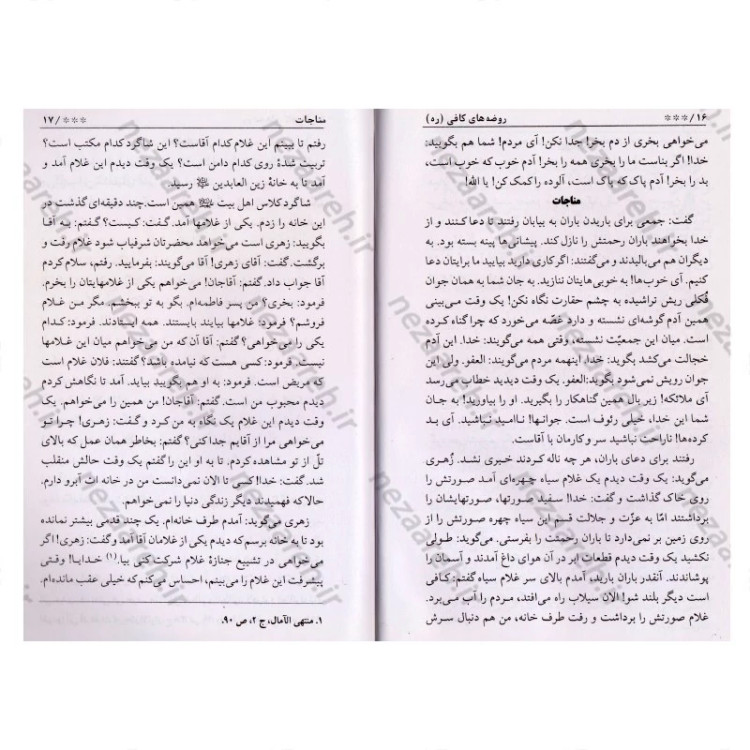 ۱۶/*** روضه‌های کافی (ره)
می‌خواهی بخری از دم بخر! جدا نکن! آی مردم! شما هم بگویید:
خدا! اگر بناست ما را بخری همه را بخر! آدم خوب که خوب است،
بد را بخر! آدم پاک که پاک است، آلوده را کمک کن! یا الله!
مناجات
گفت: جمعی برای باریدن باران به بیابان رفتند تا دعا کنند و از
خدا بخواهند باران رحمتش را نازل کند. پیشانی‌ها پینه بسته بود. به
دیگران هم می‌بالیدند و می‌گفتند: اگر کاری دارید بیایید ما برایتان دعا
کنیم. آی خوب‌ها! به خوبی‌هایتان ننازید. به جان شما به همان جوان
فُکلی ریش تراشیده به چشم حقارت نگاه نکن! یک وقت می‌بینی
همین آدم گوشه‌ای نشسته و دارد غصّه می‌خورد که چرا گناه کرده
است. میان این جمعیّت نشسته، وقتی همه می‌گویند: خدا، این آدم
خجالت می‌کشد بگوید: خدا. اینهمه مردم می‌گویند: العفو. ولی این
جوان رویش نمی‌شود بگوید: العفو. یک وقت دیدید خطاب می‌رسد
آی ملائکه! زیر بال همین گناهکار را بگیرید. او را بیاورید! به جان
شما این خدا، خیلی رئوف است. جوانها! ناامید نباشید. آی بد
کرده‌ها! ناراحت نباشید سر و کارمان با آقاست.
رفتند برای دعای باران، هر چه ناله کردند خبری نشد. زُهری
می‌گوید: یک وقت دیدم یک غلام سیاه چهره‌ای آمد صورتش را
روی خاک گذاشت و گفت: خدا! سفید صورتها، صورتهایشان را
برداشتند امّا به عزّت و جلالت قسم این سیاه چهره صورتش را از
روی زمین بر نمی‌دارد تا باران رحمتت را بفرستی. می‌گوید: طولی
نکشید یک وقت دیدم قطعات ابر در آن هوای داغ آمدند و آسمان را
پوشاندند. آنقدر باران بارید، آمدم بالای سر غلام سیاه گفتم: کافی
است دیگر بلند شو! الان سیلاب راه می‌افتد، مردم را آب می‌برد.
غلام صورتش را برداشت و رفت طرف خانه، من هم دنبال سرش
مناجات ***/۱۷
رفتم تا ببینم این غلام کدام آقاست؟ این شاگرد کدام مکتب است؟
تربیت شدهٔ روی کدام دامن است؟ یک وقت دیدم این غلام آمد و
آمد تا به خانهٔ زین العابدین رسید.
شاگرد کلاس اهل بیت همین است. چند دقیقه‌ای گذشت در
این خانه را زدم. یکی از غلامها آمد. گفت: کیست؟ گفتم: به آقا
بگویید: زهری است می‌خواهد محضرتان شرفیاب شود غلام رفت و
برگشت. گفت: آقای زهری! آقا می‌گویند: بفرمایید. رفتم، سلام کردم
آقا جواب داد. گفتم: آقاجان! می‌خواهم یکی از غلامهایتان را بخرم.
فرمود: بخری؟ من پسر فاطمه‌ام. بگو به تو ببخشم. مگر من غلام
فروشم؟ فرمود: غلامها بیایند بایستند. همه ایستادند. فرمود: کدام
یکی را می‌خواهی؟ گفتم: آقا آن که من می‌خواهم میان این غلامها
نیست. فرمود: کسی هست که نیامده باشد؟ گفتند: فلان غلام است
که مریض است. فرمود: به او هم بگویید بیاید. آمد تا نگاهش کردم
دیدم محبوب من است. گفتم: آقاجان! من همین را می‌خواهم. یک
وقت دیدم این غلام یک نگاه به من کرد و گفت: زهری! چرا تو
می‌خواهی مرا از آقایم جدا کنی؟ گفتم: بخاطر همان عمل که بالای
تل از تو مشاهده کردم. تا به او این را گفتم یک وقت حالش منقلب
شد. گفت: خدا! کسی تا الان نمی‌دانست من در خانه ات آبرو دارم.
حالا که فهمیدند دیگر زندگی دنیا را نمی‌خواهم.
زهری می‌گوید: آمدم طرف خانه‌ام. یک چند قدمی بیشتر نمانده
بود تا به خانه برسم که دیدم یکی از غلامان آقا آمد و گفت: زهری! اگر
می‌خواهی در تشییع جنازهٔ غلام شرکت کنی بیا. (۱) خدایا! وقتی
پیشرفت این غلام را می‌بینم، احساس می‌کنم که خیلی عقب مانده‌ام.
۱. منتهی الآمال، ج ۲، ص ۹۰.
nezaareh.ir